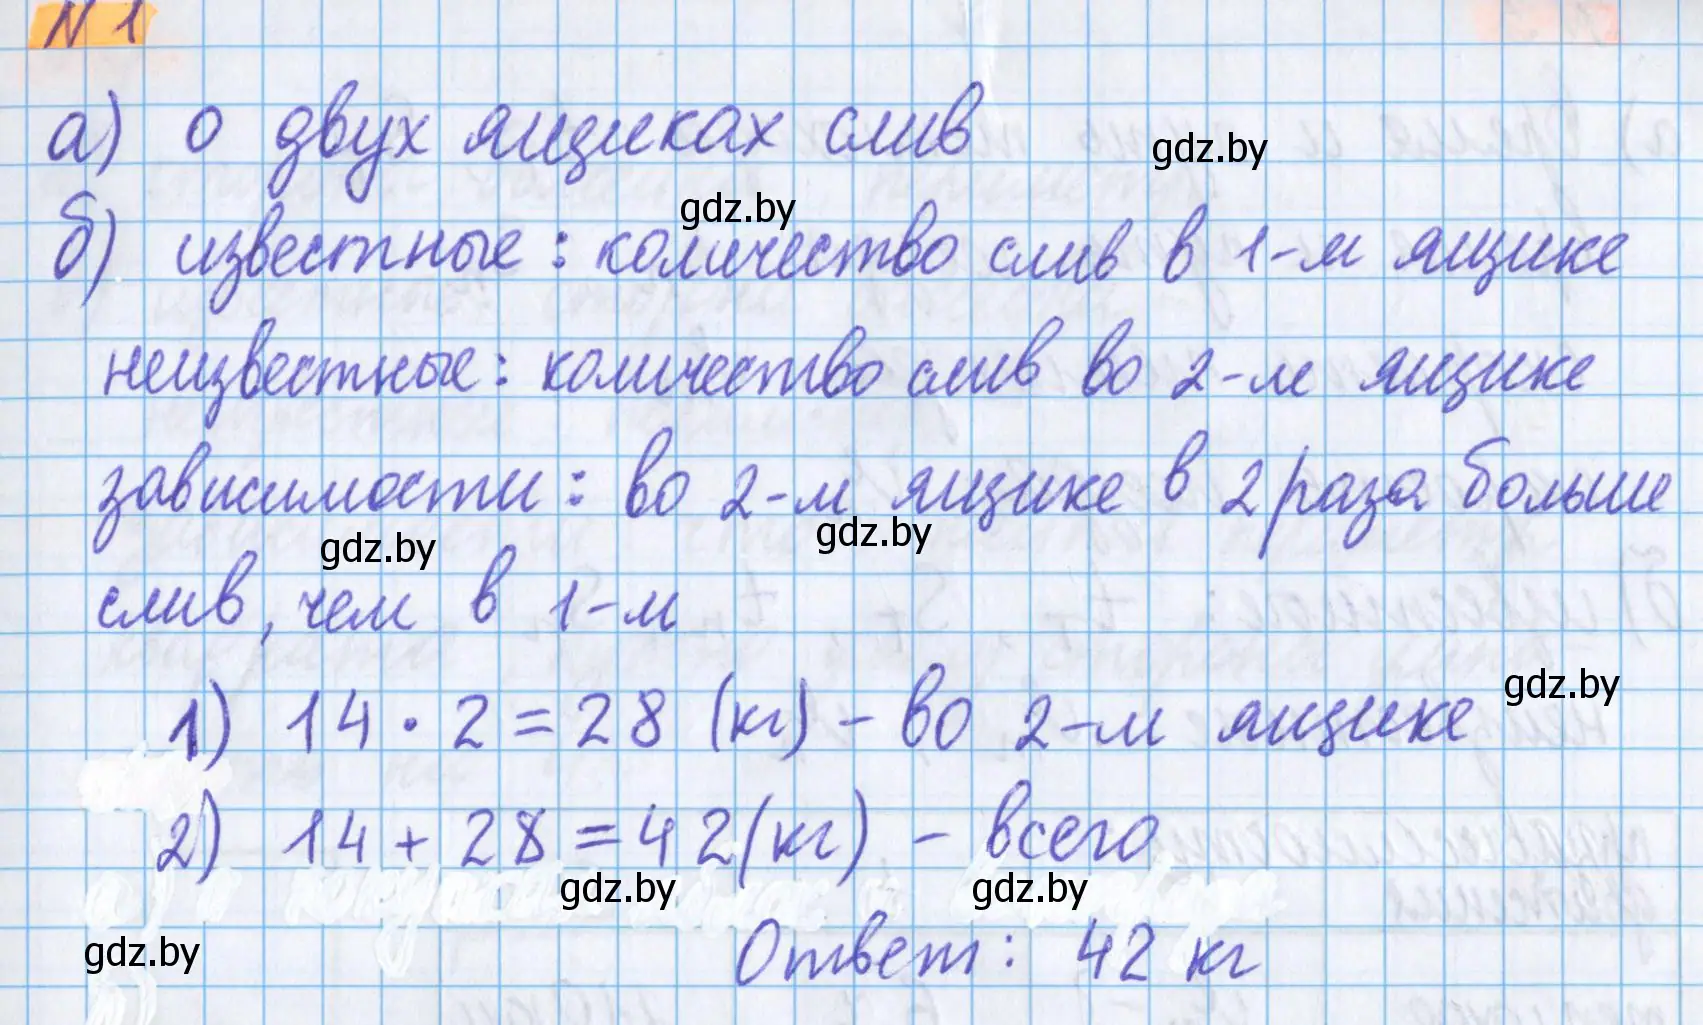 N 1
а) о двух ящиках слив
gdz.by
gdz.by
б) известные: количество слив в 1-м ящике
неизвестные: количество слив во 2-м ящике
зависимости: во 2-м ящике в 2 раза больше
gdz.by
gdz.by
слив, чем в 1-м
gdz.by
1) 14 · 2 = 28 (кг) – во 2-м ящике
2) 14 + 28 = 42 (кг) – всего
gdz.by
gdz.by
gdz.by
Ответ: 42 кг